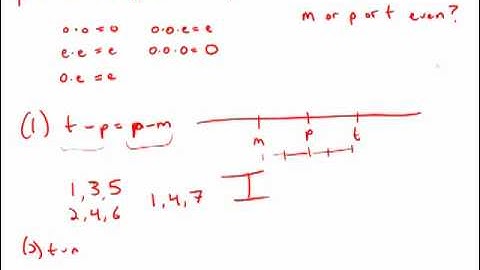 m or p or t even?
o·o=o o·o·e=e
e·e=e o·o·o=o
o·e=e
(1) t-p=p-m
m p t
1,3,5
2,4,6 1,4,7 I
(2) t-m